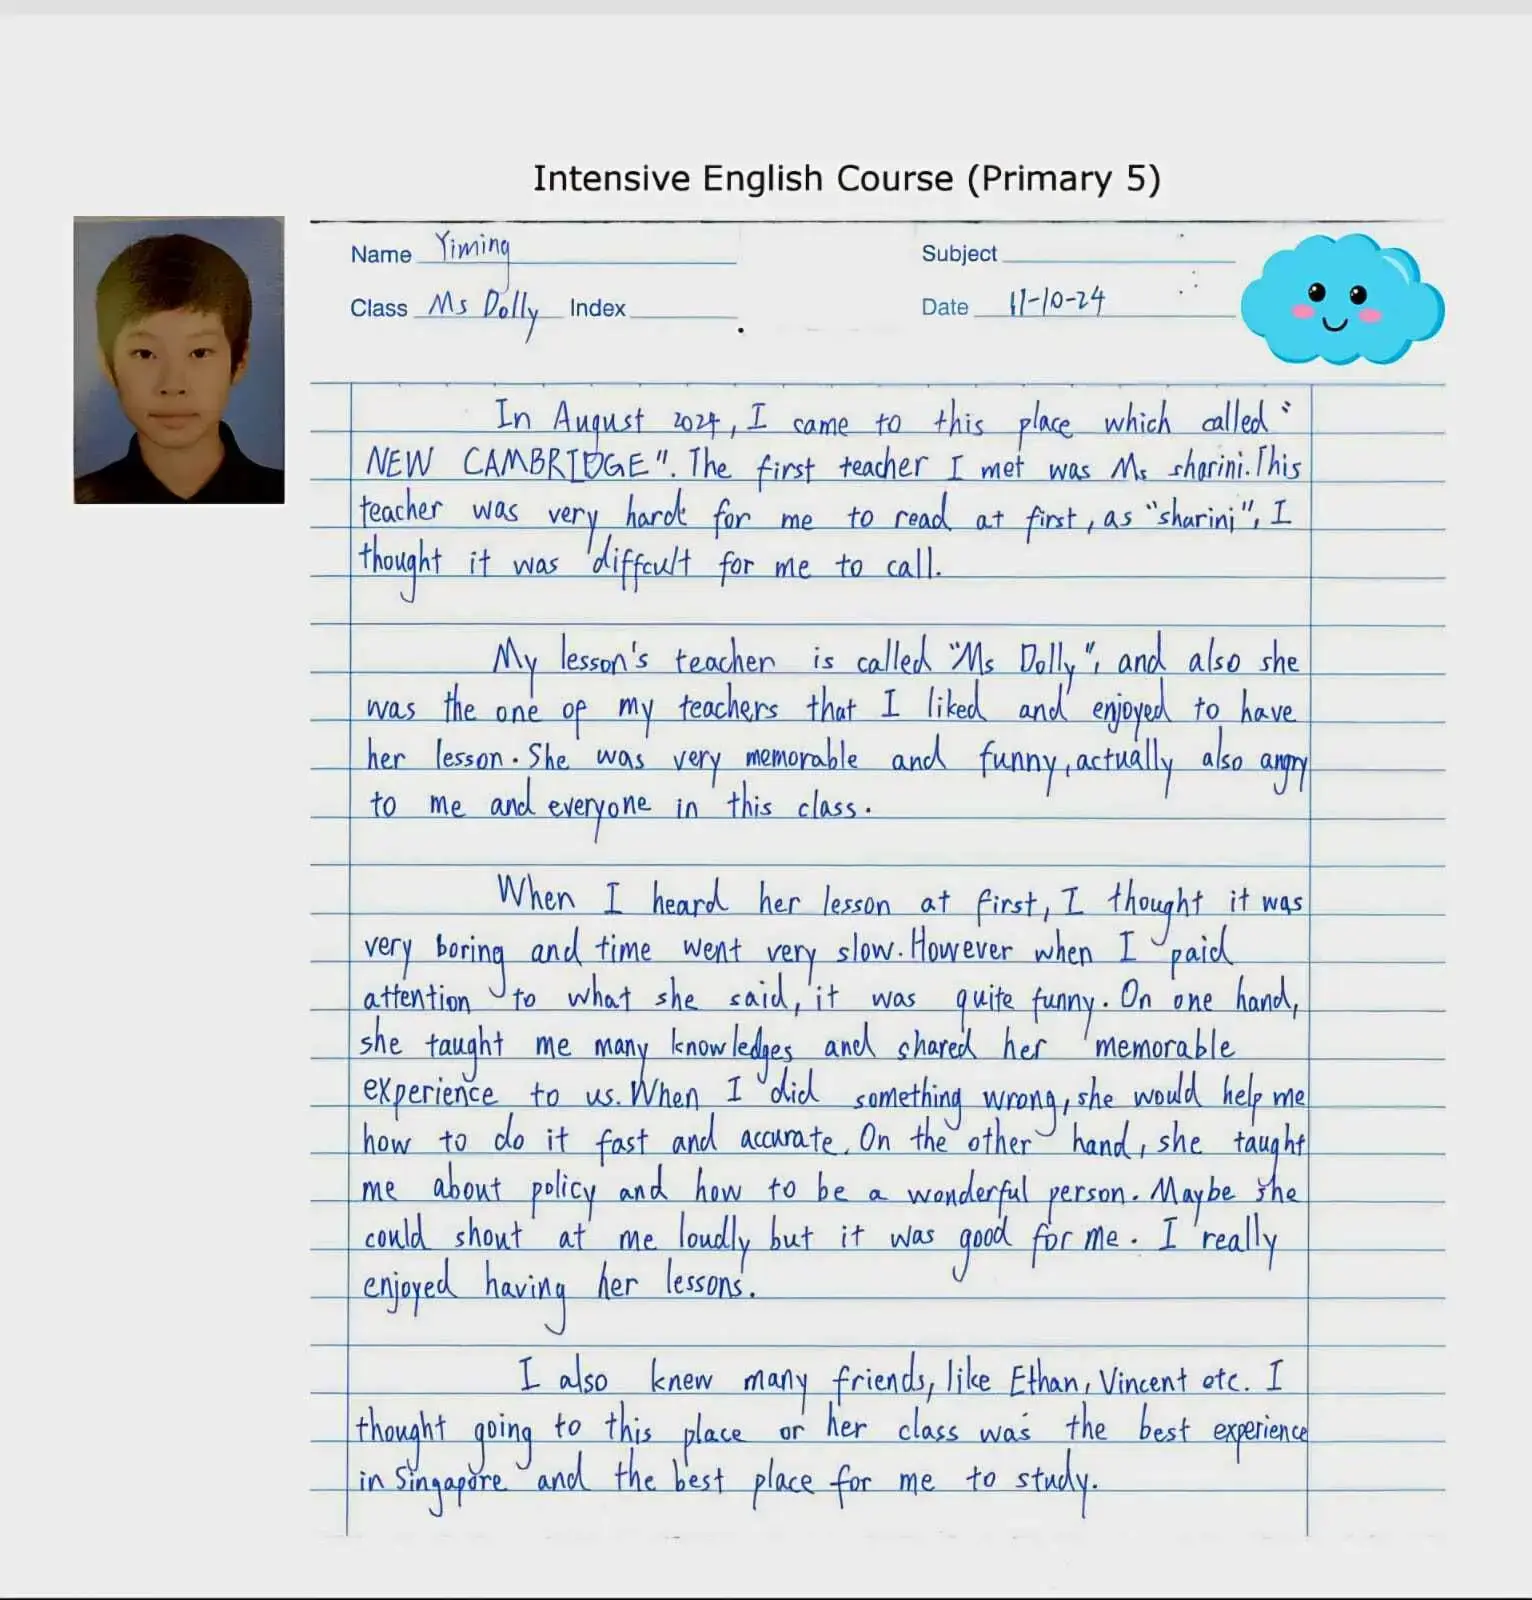 Intensive English Course (Primary 5)
Name Yiming
Subject
Class Ms Dolly Index
Date 11-10-24
In August 2024, I came to this place which called "
NEW CAMBRIDGE". The first teacher I met was Ms sharini. This
teacher was very hard for me to read at first, as "sharini", I
thought it was diffcult for me to call.
My lesson's teacher is called "Ms Dolly", and also she
was the one of my teachers that I liked and enjoyed to have
her lesson. She was very memorable and funny, actually also angry
to me and everyone in this class.
When I heard her lesson at first, I thought it was
very boring and time went very slow. However when I paid
attention to what she said, it was quite funny. On one hand,
she taught me many knowledges and shared her memorable
experience to us. When I did something wrong, she would help me
how to do it fast and accurate. On the other hand, she taught
me about policy and how to be a wonderful person. Maybe she
could shout at me loudly but it was good for me. I really
enjoyed having her lessons.
I also knew many friends, like Ethan, Vincent etc. I
thought going to this place or her class was the best experience
in Singapore and the best place for me to study.